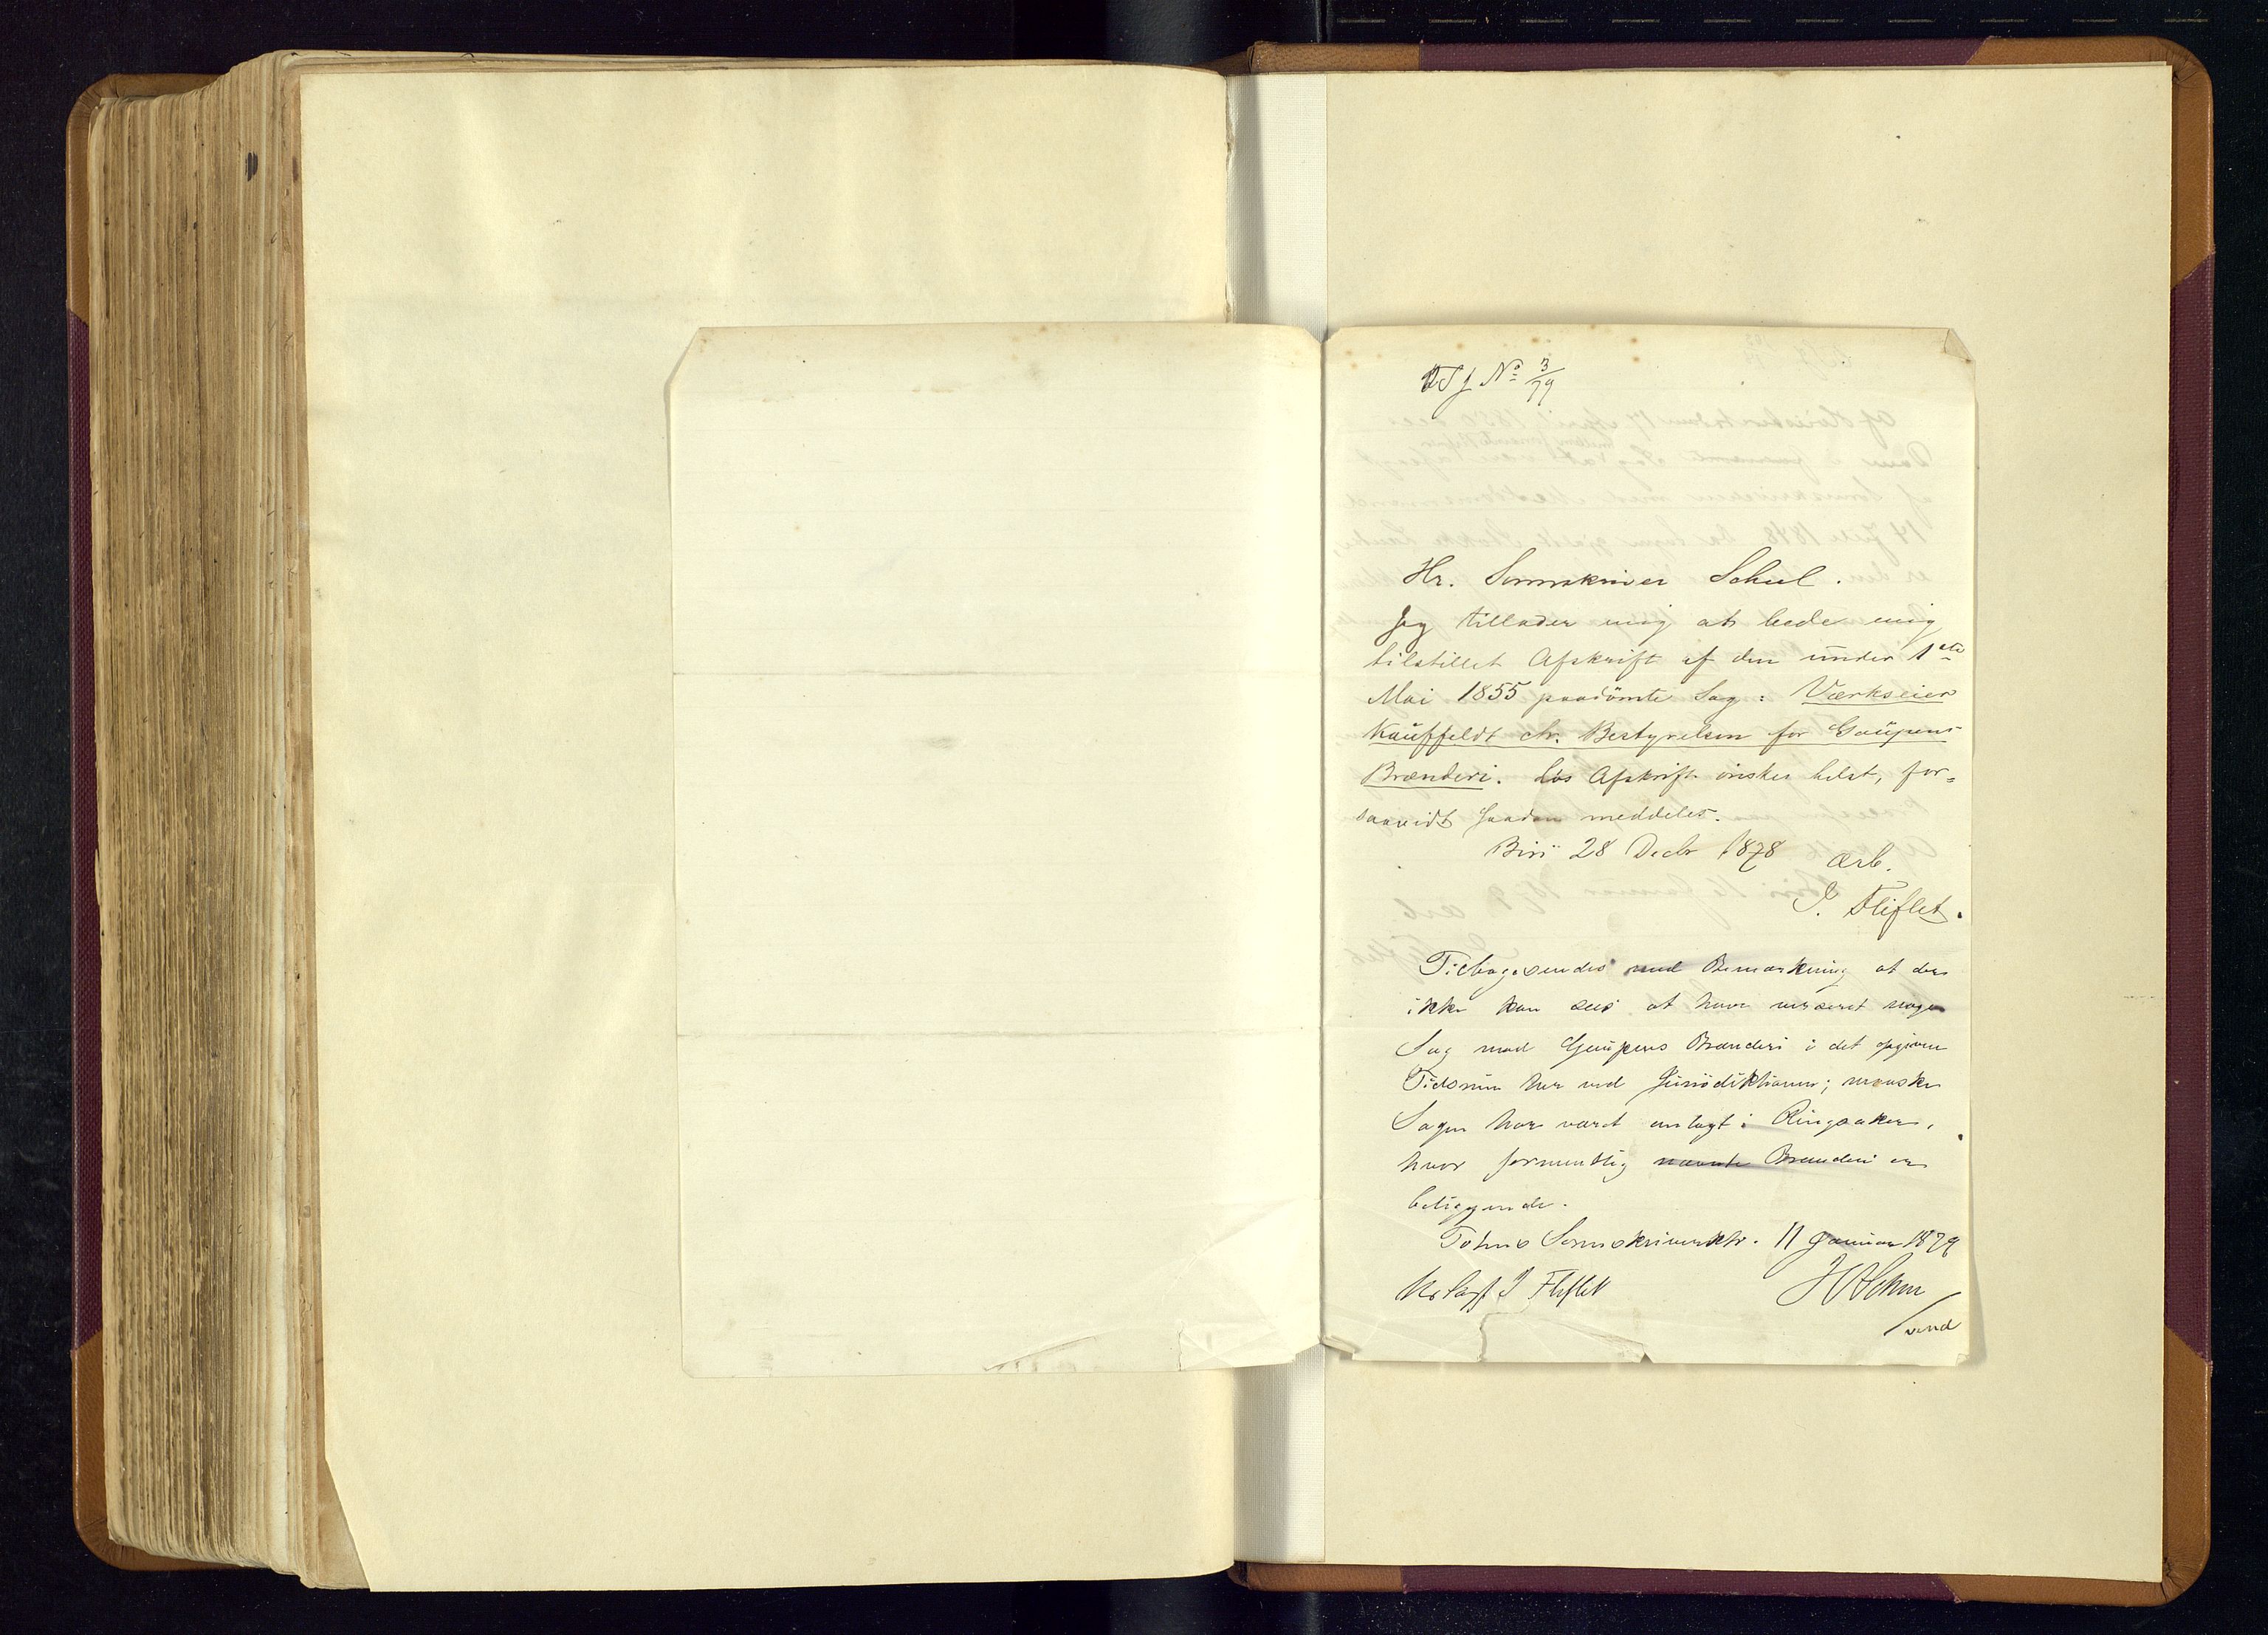 TSJ No 3/79
Hr. Sorenskriver Schul.
Jeg tillader mig at bede mig
tilstillet Afskrift af den under 1ste
Mai 1855 paadömte Sag: Værkseier
Kauffeldt ctr. Bestyrelsen for Gaupens
Brænderi. Lös Afskrift önskes helst, for=
saavidt saadan meddeles.
Biri 28 Decbr 1878
Ærb.
J. Fliflet.
Tilbagesendes med Bemærkning at der
ikke kan sees at have verseret nogen
Sag mod Gaupens Brænderi i det opgivne
Tidsrum her ved Jurisdiktionen; maaske
Sagen har været anlagt i Ringsaker,
hvor formentlig nævnte Brænderi er
beliggende.
Totens Sorenskriverktr. 11 Januar 1879
J Fliflet
vend